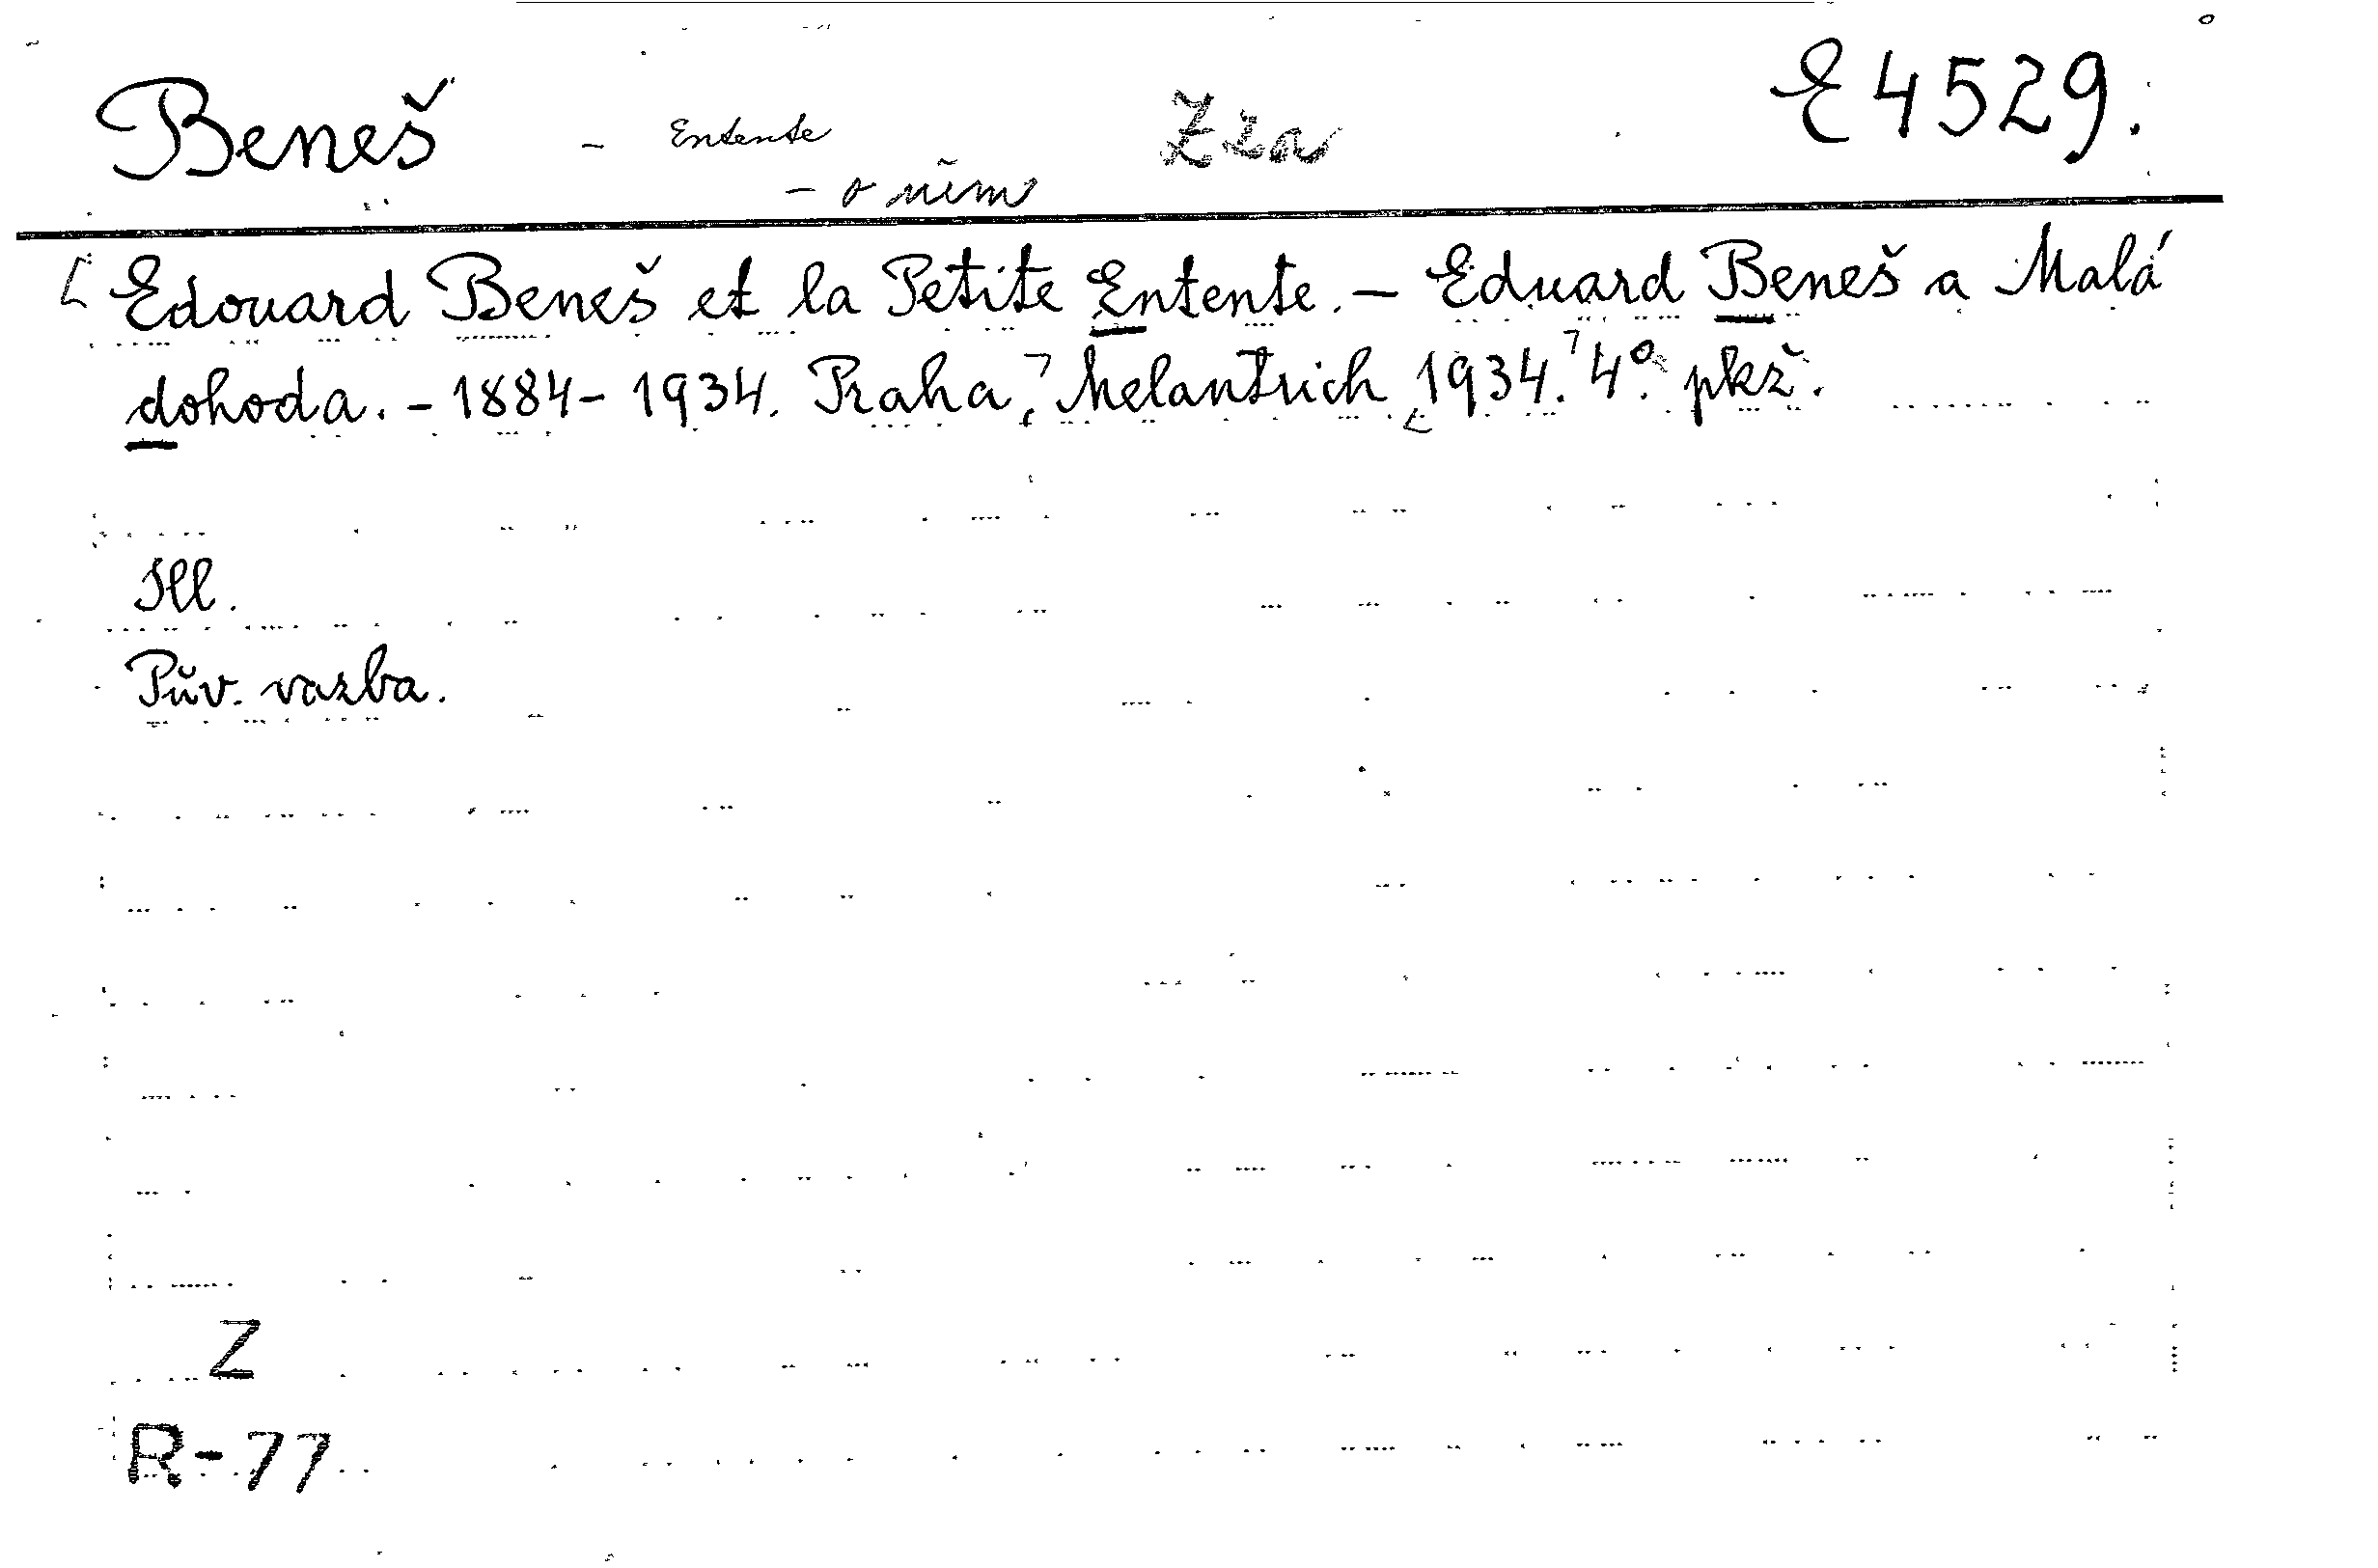 Beneš – Entente Zza E 4529.
– o něm
[Edouard Beneš et la Petite Entente. – Eduard Beneš a Malá
dohoda. – 1884 – 1934. Praha, Melantrich 1934. 4°. pkž.
Ill.
Pův. vazba.
Z
R-77